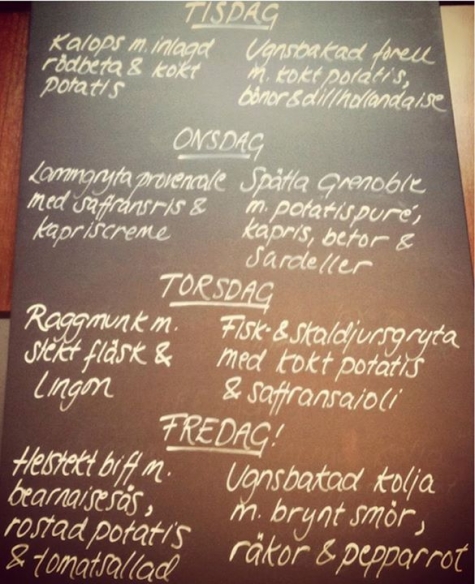 TISDAG
Kalops m. inlagd
rödbeta & kokt
potatis
Ugnsbakad forell
m. kokt potatis,
bönor & dillhollandaise
ONSDAG
Lammgryta provencale
med saffransris &
kapriscreme
Spätta Grenoble
m. potatispuré,
kapris, betor &
Sardeller
TORSDAG
Raggmunk m.
stekt fläsk &
lingon
Fisk- & skaldjursgryta
med kokt potatis
& saffransaioli
FREDAG!
Helstekt biff m.
bearnaisesås,
rostad potatis
& tomatsallad
Ugnsbakad kolja
m. brynt smör,
räkor & pepparrot